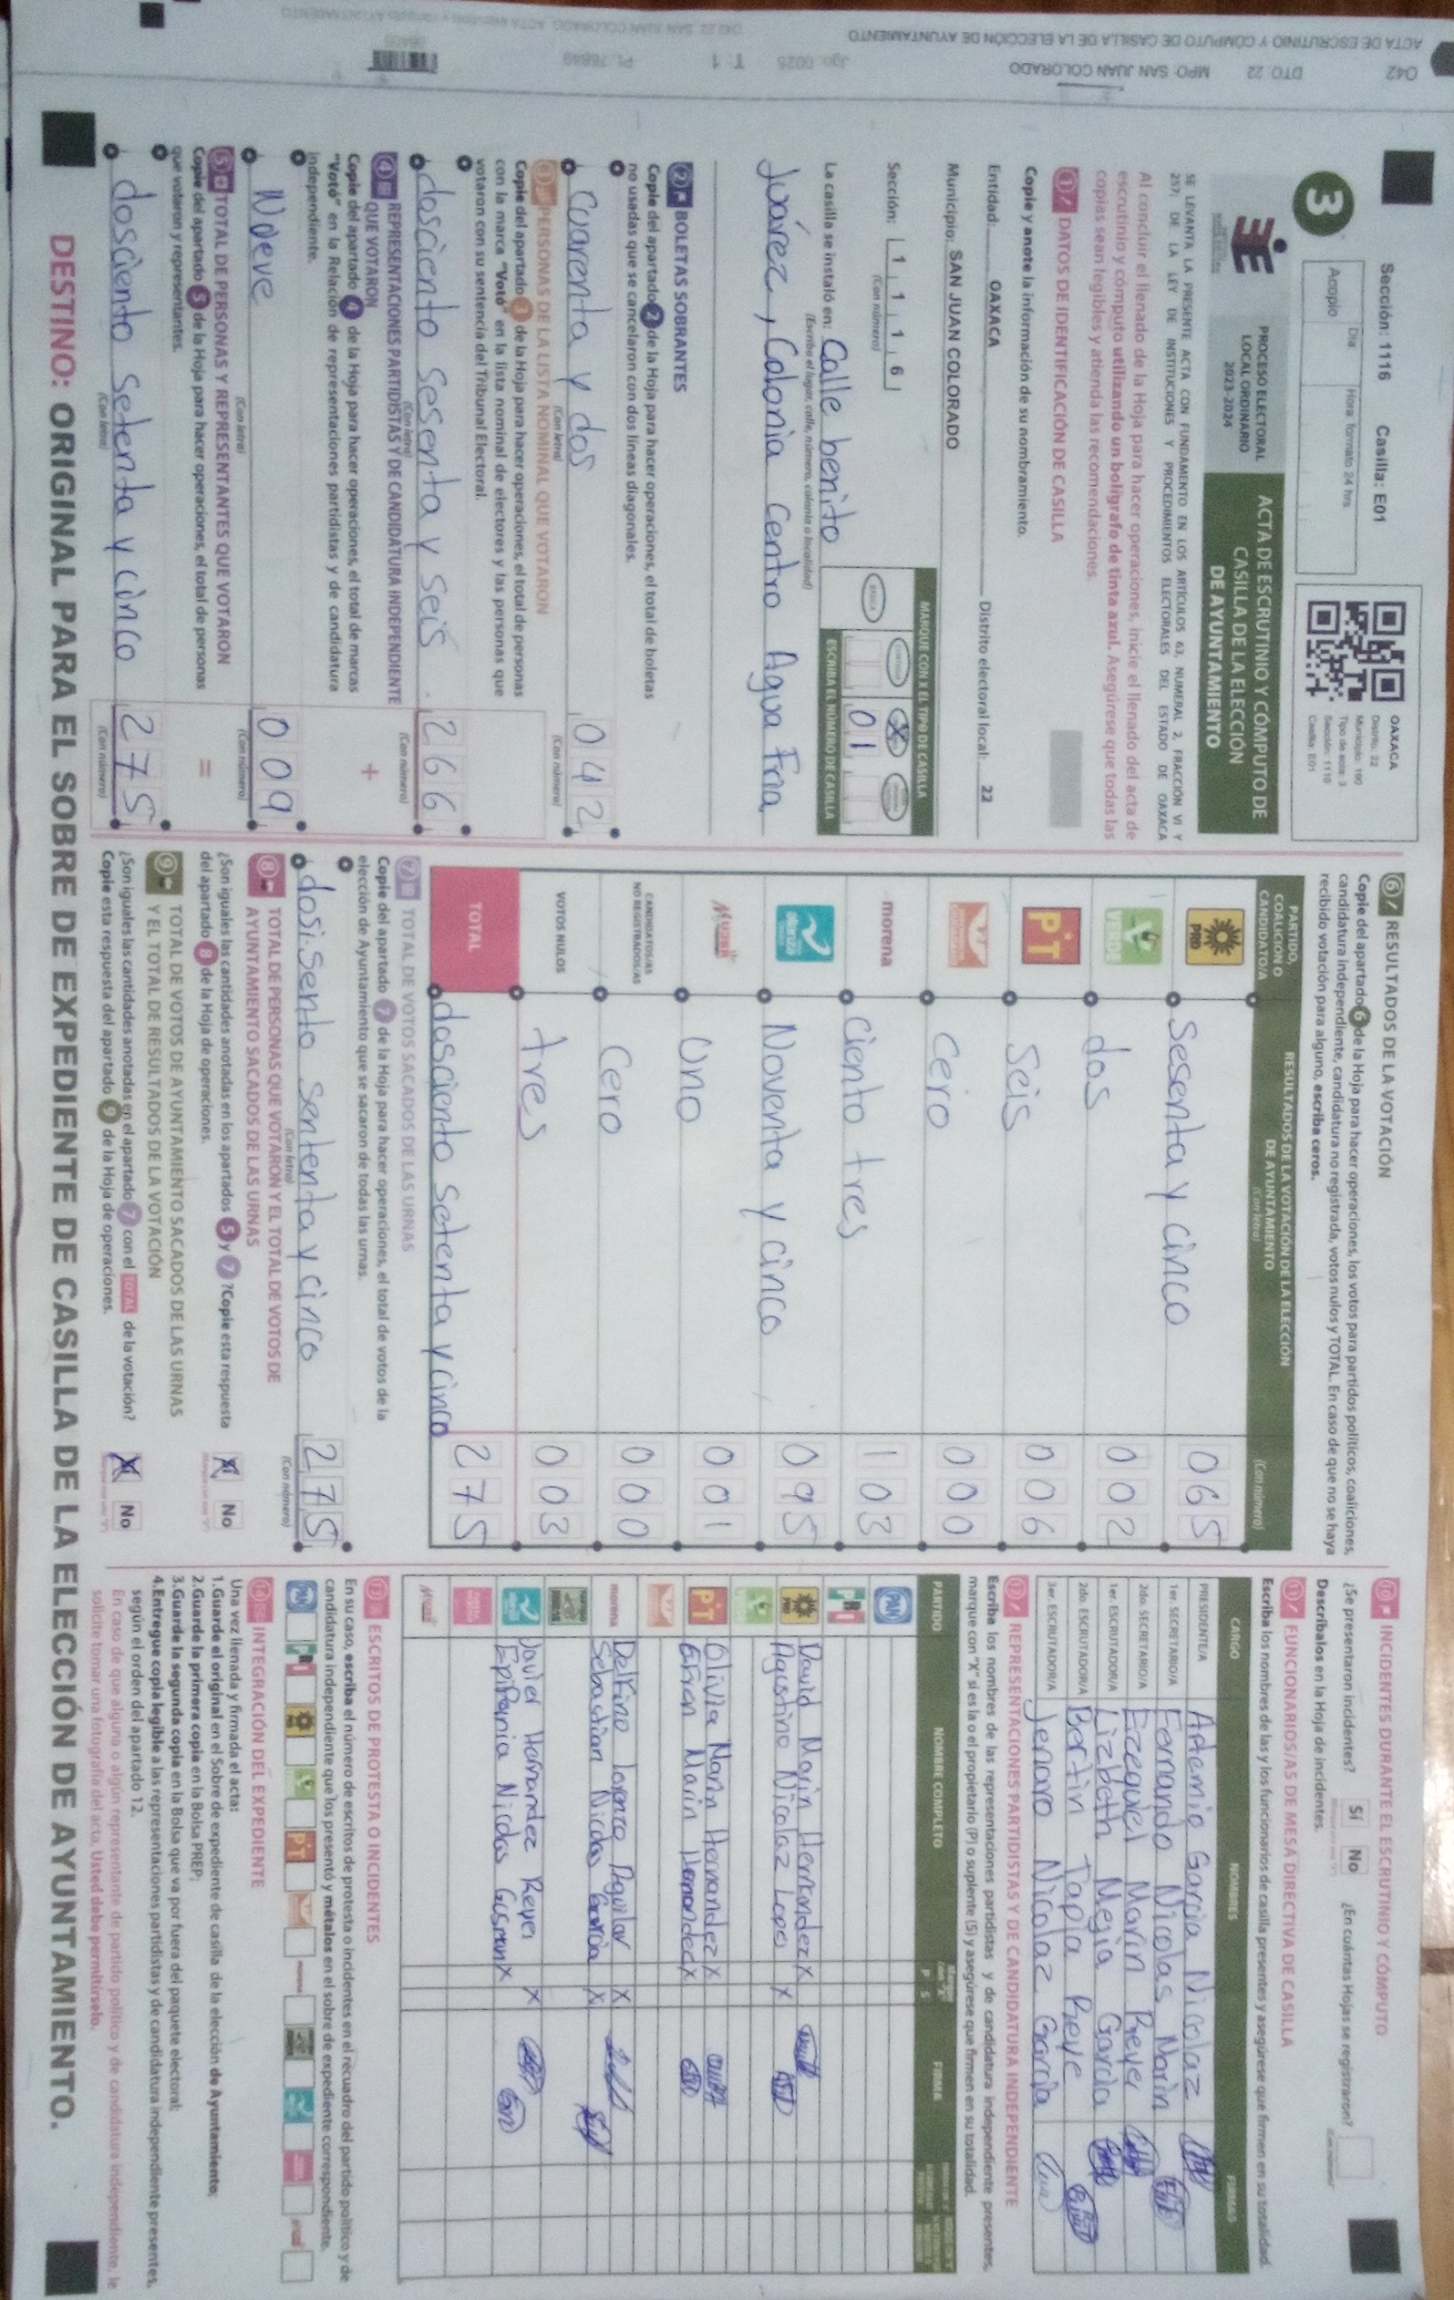 Sección: 1116 Casilla: E01
Día Hora: formato 24 hrs
Acopio
3
OAXACA
Distrito: 22
Municipio: 190
Tipo de acta: 3
Sección: 1116
Casilla: E01
PROCESO ELECTORAL
LOCAL ORDINARIO
2023-2024
ACTA DE ESCRUTINIO Y CÓMPUTO DE
CASILLA DE LA ELECCIÓN
DE AYUNTAMIENTO
SE LEVANTA LA PRESENTE ACTA CON FUNDAMENTO EN LOS ARTÍCULOS 63, NUMERAL 2, FRACCIÓN VI Y
257; DE LA LEY DE INSTITUCIONES Y PROCEDIMIENTOS ELECTORALES DEL ESTADO DE OAXACA
Al concluir el llenado de la Hoja para hacer operaciones, inicie el llenado del acta de
escrutinio y cómputo utilizando un bolígrafo de tinta azul. Asegúrese que todas las
copias sean legibles y atienda las recomendaciones.
1 DATOS DE IDENTIFICACIÓN DE CASILLA
Copie y anote la información de su nombramiento.
Entidad: OAXACA Distrito electoral local: 22
Municipio: SAN JUAN COLORADO
Sección: 1 1 1 6
(Con número)
MARQUE CON X EL TIPO DE CASILLA
BÁSICA
0 1
ESCRIBA EL NÚMERO DE CASILLA
La casilla se instaló en: Calle benito
(Escriba el lugar, calle, número, colonia o localidad)
Juárez, Colonia Centro Agua Fria
2 BOLETAS SOBRANTES
Copie del apartado 2 de la Hoja para hacer operaciones, el total de boletas
no usadas que se cancelaron con dos líneas diagonales.
Cuarenta y dos 042
(Con letra) (Con número)
3 PERSONAS DE LA LISTA NOMINAL QUE VOTARON
Copie del apartado 3 de la Hoja para hacer operaciones, el total de personas
con la marca "Votó" en la lista nominal de electores y las personas que
votaron con su sentencia del Tribunal Electoral.
dosciento sesenta y seis 266
(Con letra) (Con número)
4 REPRESENTACIONES PARTIDISTAS Y DE CANDIDATURA INDEPENDIENTE
QUE VOTARON
+
Copie del apartado 4 de la Hoja para hacer operaciones, el total de marcas
"Votó" en la Relación de representaciones partidistas y de candidatura
independiente.
Nueve 009
(Con letra) (Con número)
5 TOTAL DE PERSONAS Y REPRESENTANTES QUE VOTARON
=
Copie del apartado 5 de la Hoja para hacer operaciones, el total de personas
que votaron y representantes.
dosciento setenta y cinco 275
(Con letra) (Con número)
6 RESULTADOS DE LA VOTACIÓN
Copie del apartado 6 de la Hoja para hacer operaciones, los votos para partidos políticos, coaliciones,
candidatura independiente, candidatura no registrada, votos nulos y TOTAL. En caso de que no se haya
recibido votación para alguno, escriba ceros.
PARTIDO,
COALICIÓN O
CANDIDATO/A
RESULTADOS DE LA VOTACIÓN DE LA ELECCIÓN
DE AYUNTAMIENTO
(Con letra) (Con número)
PRD Sesenta y cinco 065
VERDE dos 002
PT Seis 006
Cero 000
morena Ciento tres 103
Noventa y cinco 095
MUJER Uno 001
CANDIDATOS/AS
NO REGISTRADOS/AS Cero 000
VOTOS NULOS tres 003
TOTAL dosciento setenta y cinco 275
7 TOTAL DE VOTOS SACADOS DE LAS URNAS
Copie del apartado 7 de la Hoja para hacer operaciones, el total de votos de la
elección de Ayuntamiento que se sacaron de todas las urnas.
dosisento sententa y cinco 275
(Con letra) (Con número)
8 TOTAL DE PERSONAS QUE VOTARON Y EL TOTAL DE VOTOS DE
AYUNTAMIENTO SACADOS DE LAS URNAS
¿Son iguales las cantidades anotadas en los apartados 5 y 7? Copie esta respuesta
del apartado 8 de la Hoja de operaciones. X No
9 TOTAL DE VOTOS DE AYUNTAMIENTO SACADOS DE LAS URNAS
Y EL TOTAL DE RESULTADOS DE LA VOTACIÓN
¿Son iguales las cantidades anotadas en el apartado 7 con el TOTAL de la votación?
Copie esta respuesta del apartado 9 de la Hoja de operaciones. X No
10 INCIDENTES DURANTE EL ESCRUTINIO Y CÓMPUTO
¿Se presentaron incidentes? Sí No ¿En cuántas Hojas se registraron?
Descríbalos en la Hoja de incidentes.
11 FUNCIONARIOS/AS DE MESA DIRECTIVA DE CASILLA
Escriba los nombres de las y los funcionarios de casilla presentes y asegúrese que firmen en su totalidad.
CARGO NOMBRES FIRMAS
PRESIDENTE/A Artemio Garcia Nicolaz
1er. SECRETARIO/A Fernando Nicolas Marin
2do. SECRETARIO/A Eizequiel Marin Reyer
1er. ESCRUTADOR/A Lizbeth Mejia Garcia
2do. ESCRUTADOR/A Bertin Tapia Reye
3er. ESCRUTADOR/A Jenaro Nicolaz Garcia
12 REPRESENTACIONES PARTIDISTAS Y DE CANDIDATURA INDEPENDIENTE
Escriba los nombres de las representaciones partidistas y de candidatura independiente presentes,
marque con "X" si es la o el propietario (P) o suplente (S) y asegúrese que firmen en su totalidad.
PARTIDO NOMBRE COMPLETO P S FIRMA
PAN
PRD David Marin Hernandez X
Agustino Nicolaz Lopez X
PT Olivia Marin Hernandez X
Brian Marin Hernandez X
morena Delfino Lorenzo Aguilar X
Sebastian Nicolas Garcia X
Javier Hernandez Reyes X
Epifania Nicolas Gusman X
13 ESCRITOS DE PROTESTA O INCIDENTES
En su caso, escriba el número de escritos de protesta o incidentes en el recuadro del partido político y de
candidatura independiente que los presentó y métalos en el sobre de expediente correspondiente.
PAN PT
14 INTEGRACIÓN DEL EXPEDIENTE
Una vez llenada y firmada el acta:
1.Guarde el original en el Sobre de expediente de casilla de la elección de Ayuntamiento;
2.Guarde la primera copia en la Bolsa PREP;
3.Guarde la segunda copia en la Bolsa que va por fuera del paquete electoral;
4.Entregue copia legible a las representaciones partidistas y de candidatura independiente presentes,
según el orden del apartado 12.
En caso de que alguna o algún representante de partido político y de candidatura independiente, le
solicite tomar una fotografía del acta. Usted debe permitírselo.
DESTINO: ORIGINAL PARA EL SOBRE DE EXPEDIENTE DE CASILLA DE LA ELECCIÓN DE AYUNTAMIENTO.
042 DTO: 22 MPO: SAN JUAN COLORADO
ACTA DE ESCRUTINIO Y CÓMPUTO DE CASILLA DE LA ELECCIÓN DE AYUNTAMIENTO